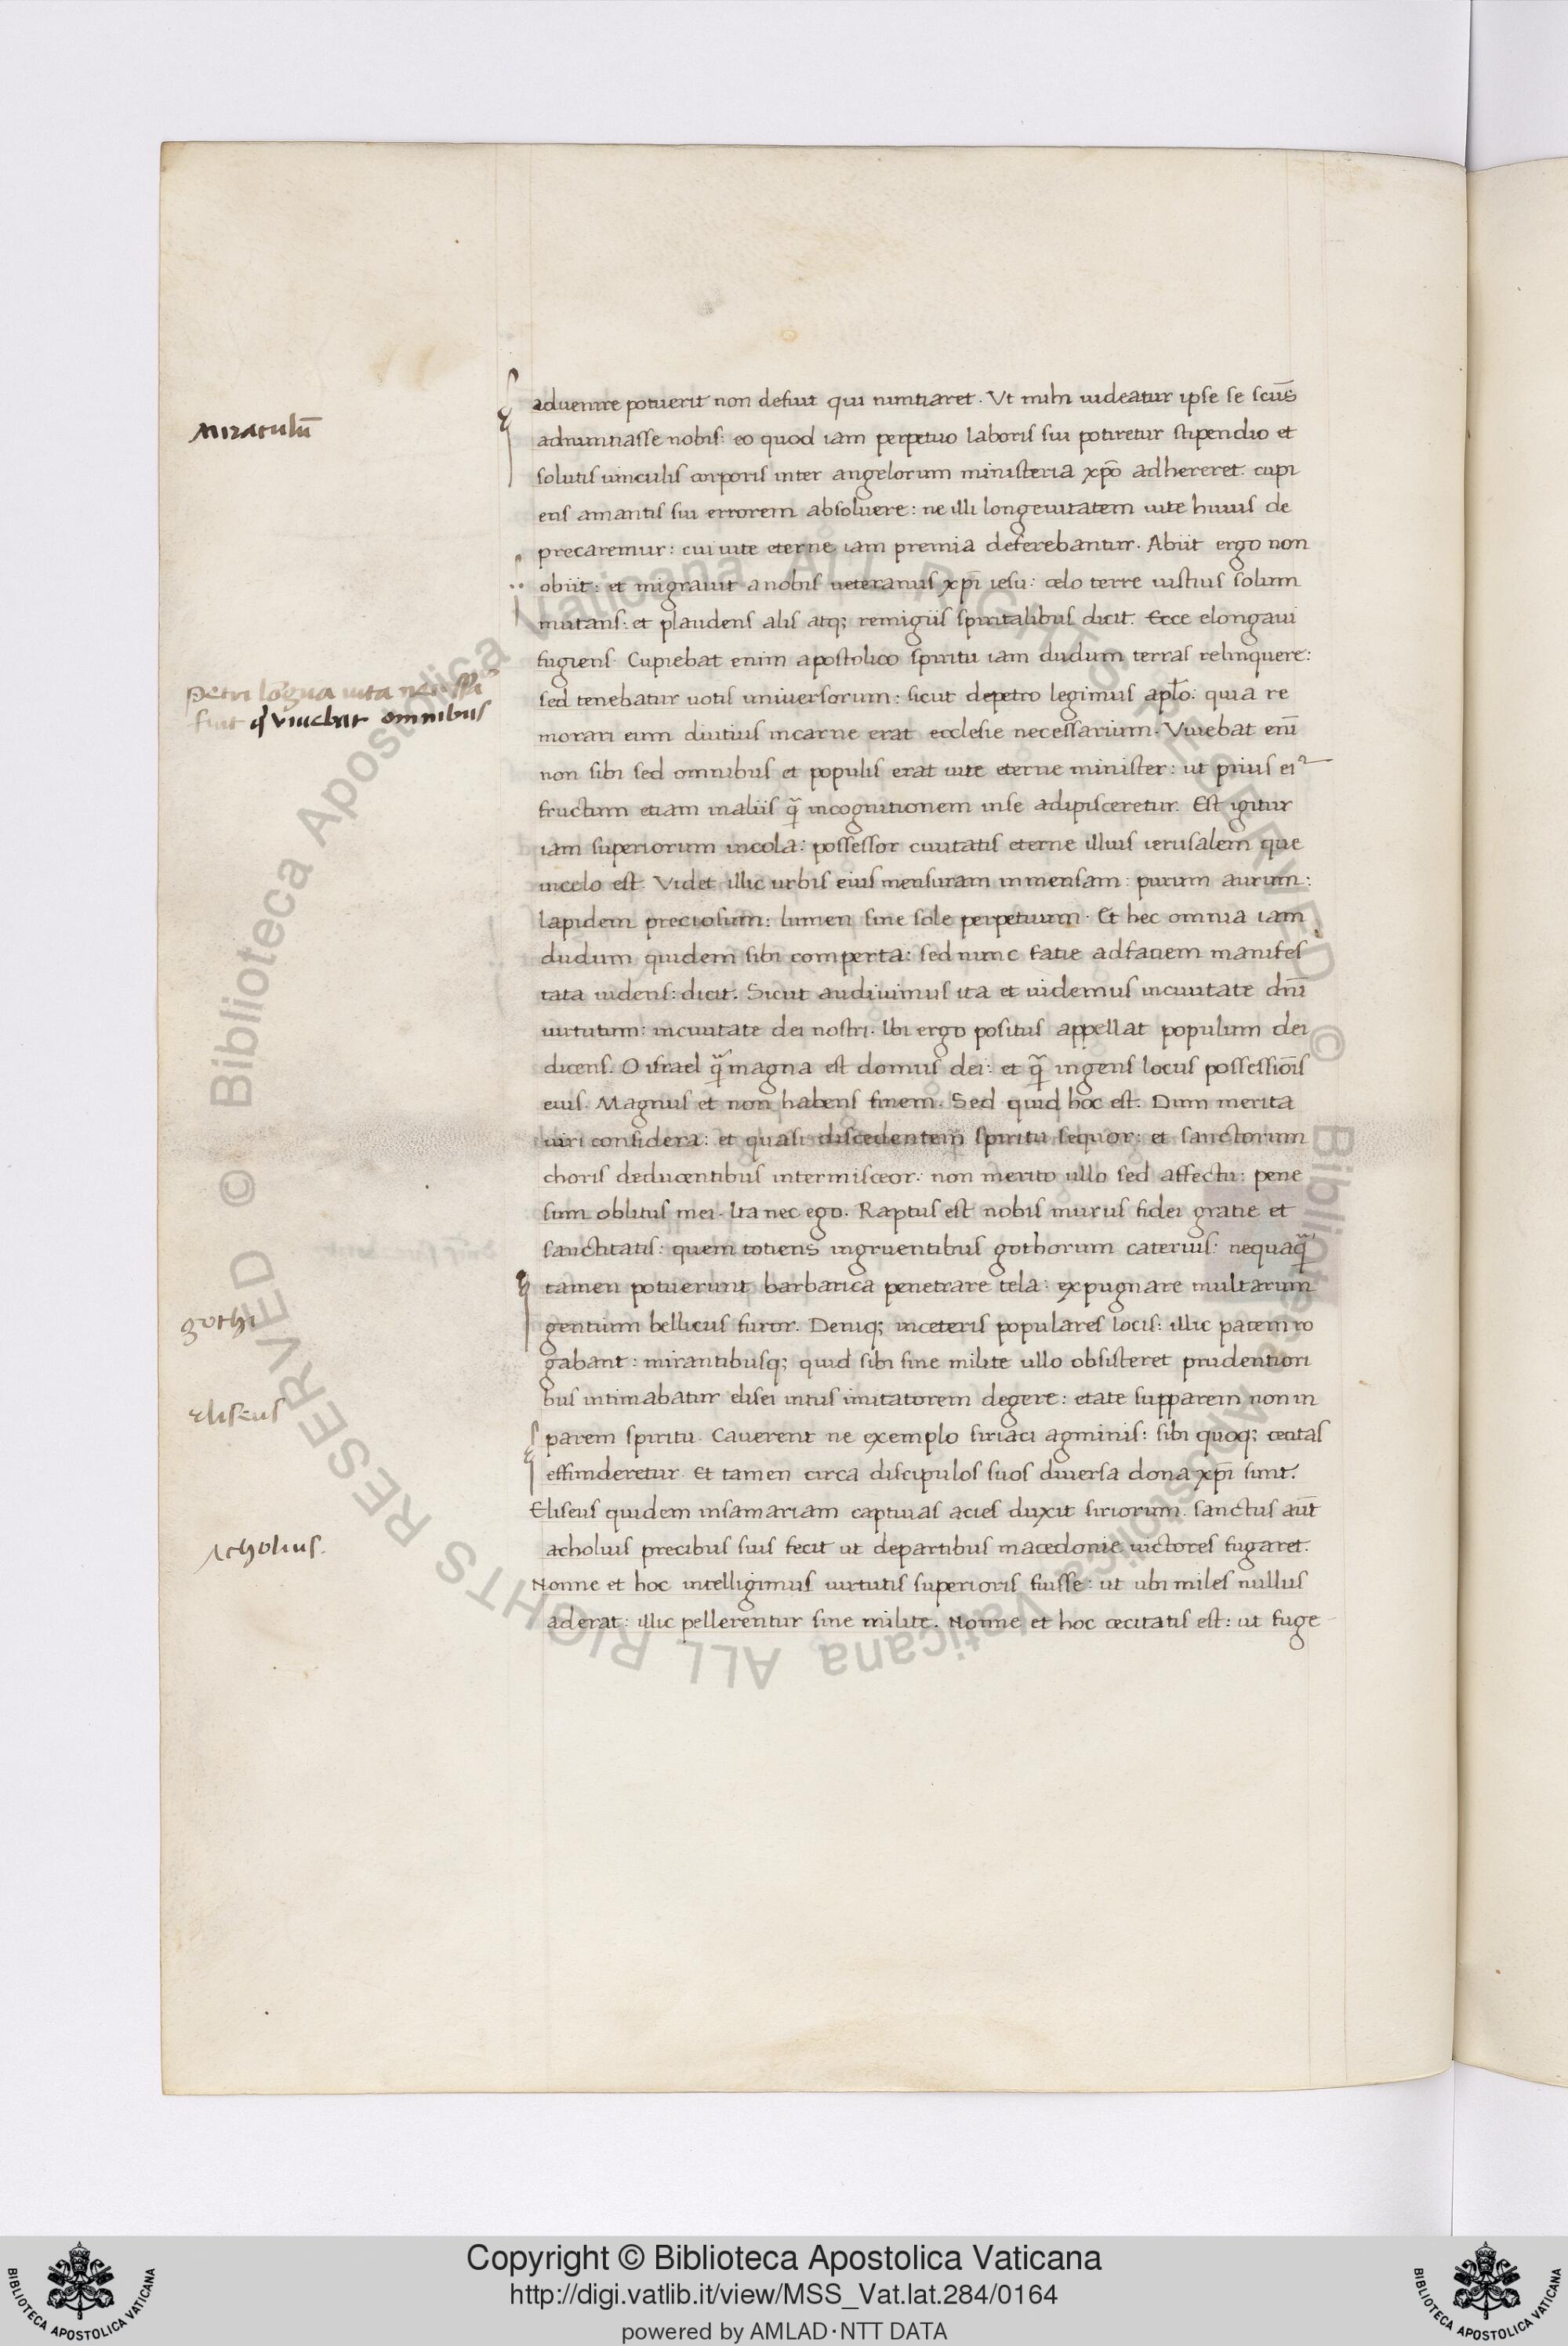 aduenire potuerit non defuit qui nuntiaret. Vt mihi uideatur ipse se scūs
Miraculū
adnuntiasse nobis: eo quod iam perpetuo laboris sui potiretur stipendio et
solutis uinculis corporis inter angelorum ministeria xp̄o adhereret. cupi
ens amantis sui errorem absoluere: ne illi longeuitatem uite huius de
precaremur: cui uite eterne iam premia deferebantur. Abiit ergo non
obiit: et migrauit a nobis ueteranus xp̄i iesu: celo terre iustius solum
mutans: et plaudens alis atq; remigiis spiritalibus dicit. Ecce elongaui
fugiens. Cupiebat enim apostolico spiritu iam dudum terras relinquere:
Petri lōgua uita
fuit viuebat omnibus
sed tenebatur uotis uniuersorum: sicut depetro legimus aplo: quia re
morari eum diutius incarne erat ecclesie necessarium. Viuebat eni̅
non sibi sed omnibus et populis erat uite eterne minister: ut prius ei
fructum etiam inaliis q̃ incognitionem inse adipisceretur. Est igitur
iam superiorum incola: possessor ciuitatis eterne illius ierusalem que
incelo est. Videt illic urbis eius mensuram inmensam: purum aurum:
lapidem preciosum: lumen sine sole perpetuum. Et hec omnia iam
dudum quidem sibi comperta: sed nunc facie adfaciem manifes
tata uidens: dicit. Sicut audiuimus ita et uidemus inciuitate dn̄i
uirtutum: inciuitate dei nostri. Ibi ergo positus appellat populum dei
dicens. O israel q̃ magna est domus dei: et q̃ ingens locus possessiōis
eius. Magnus et non habens finem. Sed quid hoc est. Dum merita
uiri considera: et quasi discedentem spiritu sequor: et sanctorum
choris deducentibus intermisceor: non merito ullo sed affectu: pene
sum oblitus mei. Ita nec ego. Raptus est nobis murus fidei gratie et
sanctitatis: quem totiens ingruentibus gothorum cateruis: nequaq̃
tamen potuerunt barbarica penetrare tela: expugnare multarum
gothi
gentium bellicus furor. Deniq; inceteris populares locis: illic pacem ro
gabant: mirantibusq; quid sibi sine milite ullo obsisteret prudentiori
eliseus
bus intimabatur elisei intus imitatorem degere: etate supparem non in
parem spiritu. Cauerent ne exemplo siriaci agminis: sibi quoq; cecitas
effunderetur. Et tamen circa discipulos suos diuersa dona xp̄i sunt.
Eliseus quidem insamariam captiuas acies duxit siriorum. sanctus aūt
Acholius.
acholius precibus suis fecit ut departibus macedonie uictores fugaret.
Nonne et hoc intelligimus uirtutis superioris fuisse: ut ubi miles nullus
aderat: illic pellerentur sine milite. Nonne et hoc cecitatis est: ut fuge
Copyright © Biblioteca Apostolica Vaticana
http://digi.vatlib.it/view/MSS_Vat.lat.284/0164
powered by AMLAD·NTT DATA
BIBLIOTECA APOSTOLICA VATICANA
BIBLIOTECA APOSTOLICA VATICANA
© Biblioteca Apostolica Vaticana ALL RIGHTS RESERVED
© Biblioteca Apostolica Vaticana ALL RIGHTS RESERVED